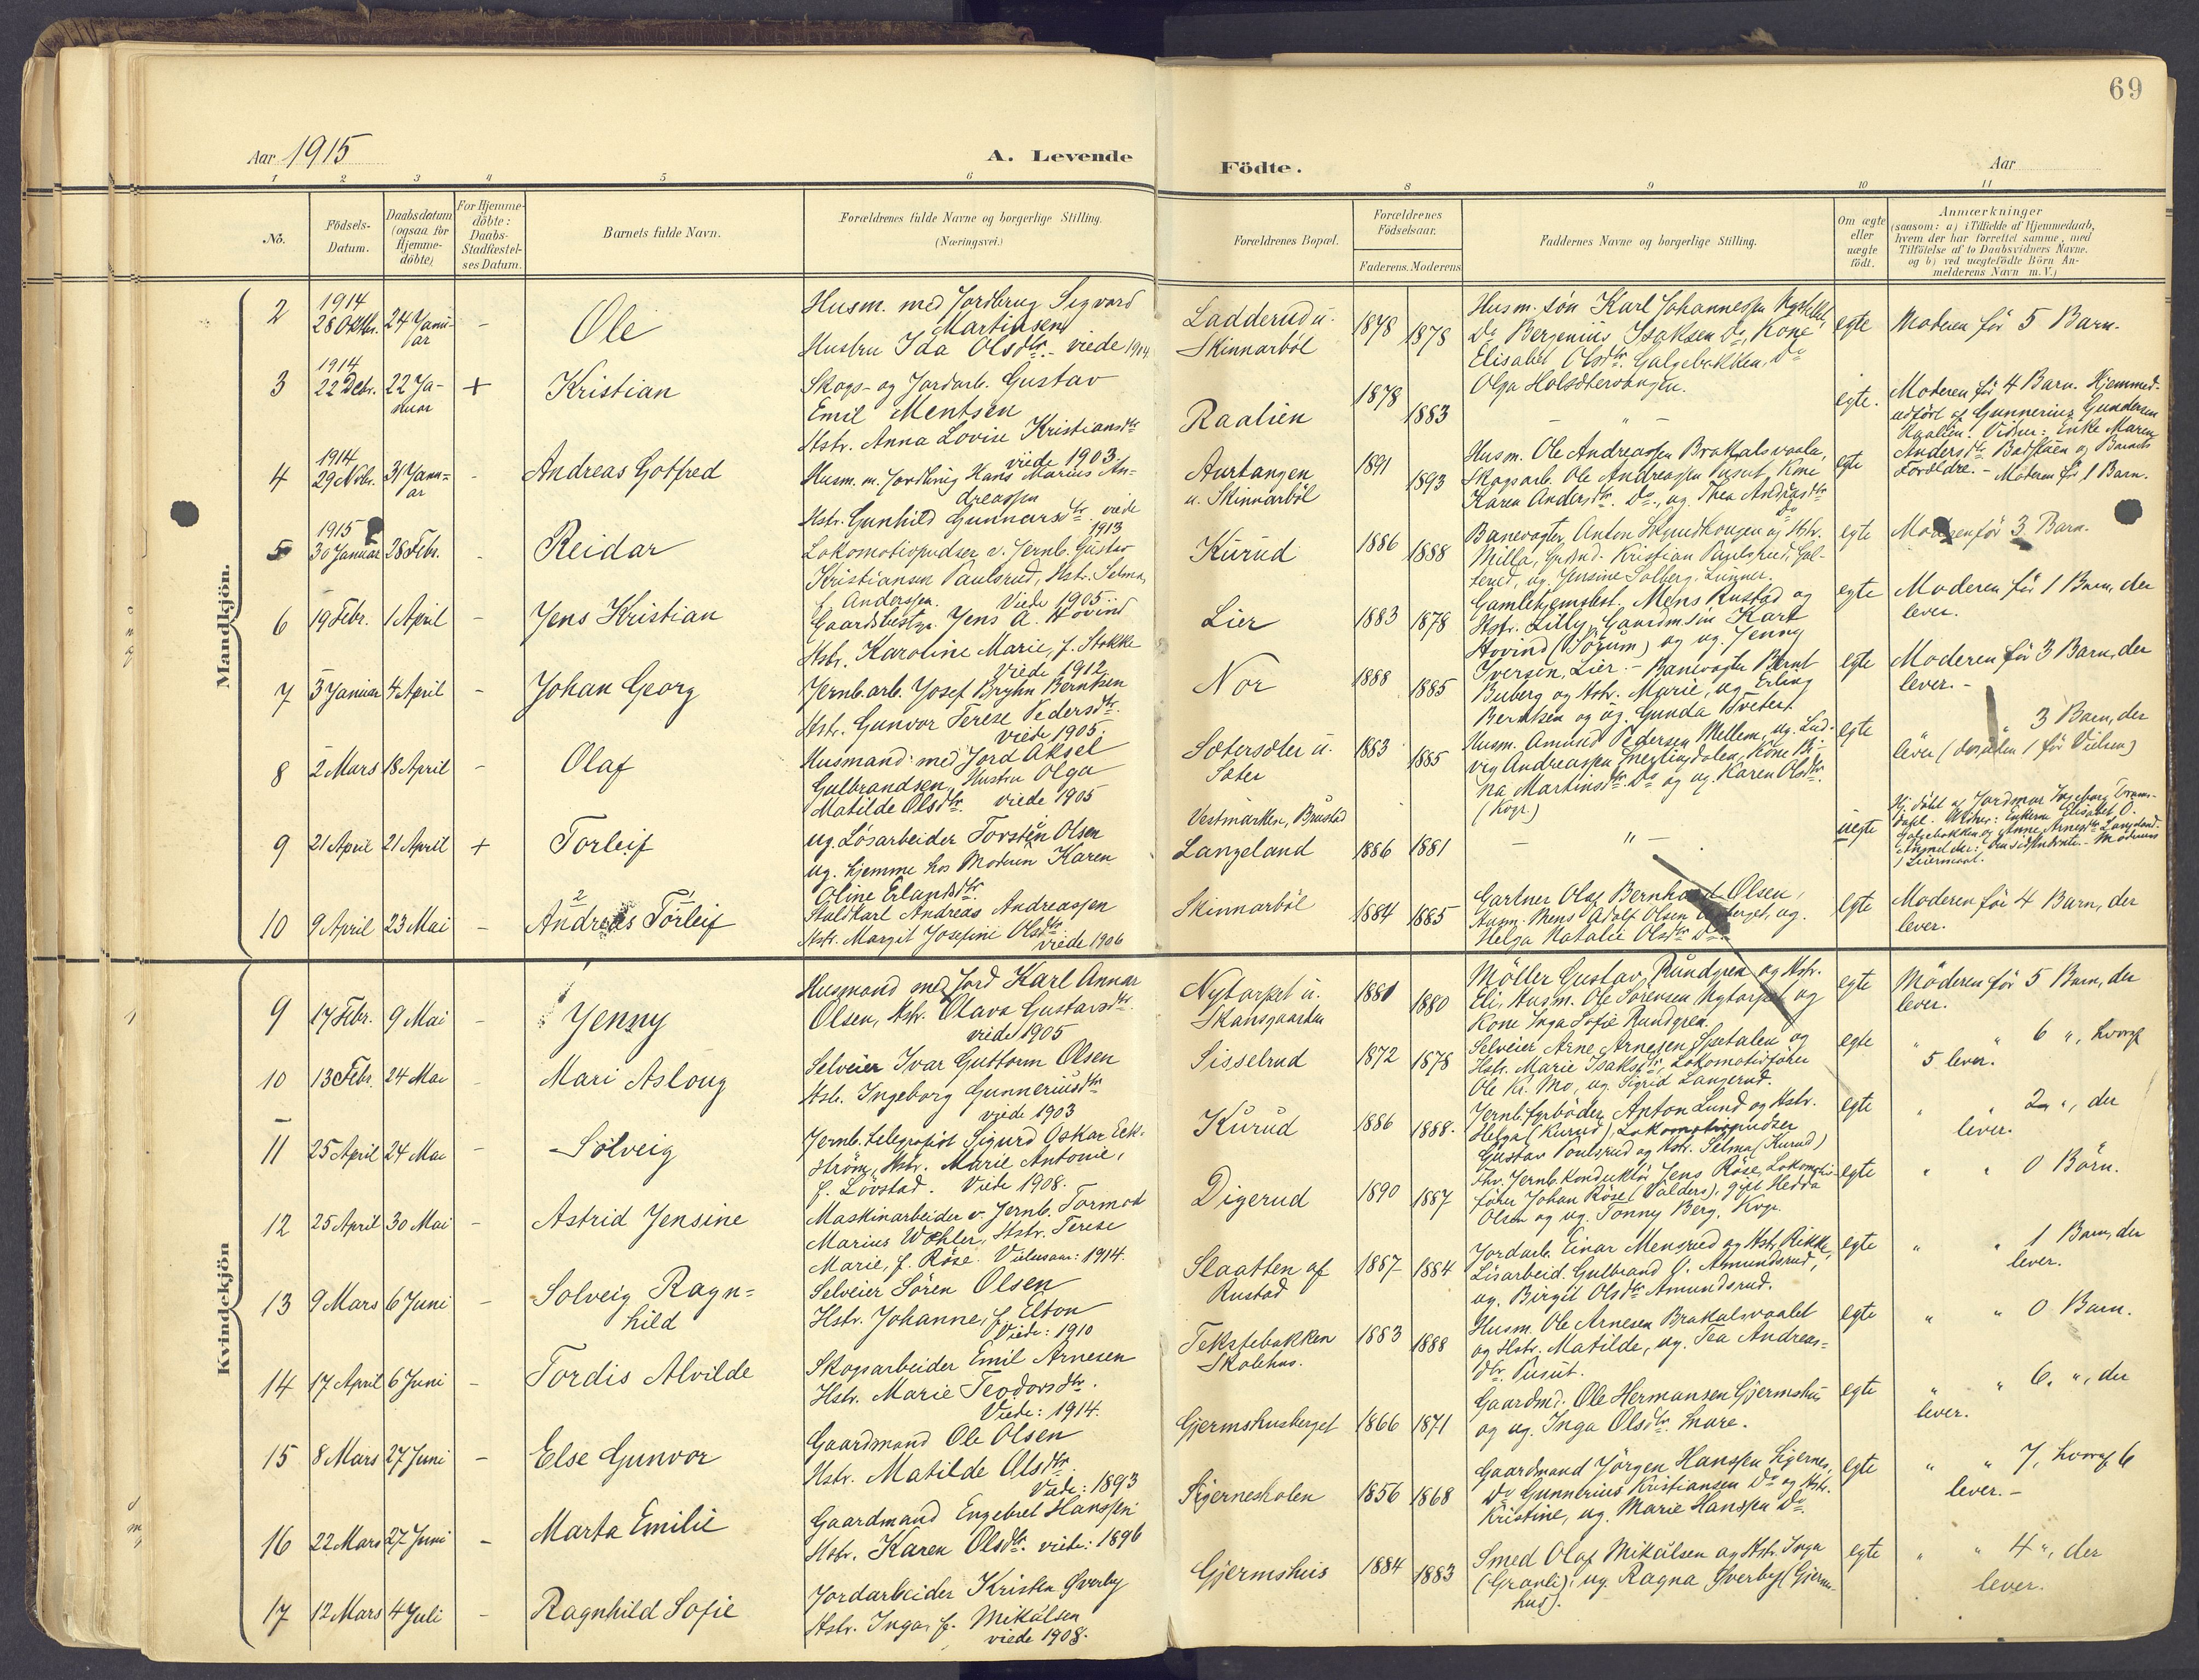 69
Aar 1915
A. Levende
Födte.
Aar
1 2 3 4 5 6 8 9 10 11
No.
Födsels-
Datum.
Daabsdatum
(ogsaa for
Hjemme-
döbte)
For Hjemme-
döbte:
Daabs-
Stadfæstel-
ses Datum.
Barnets fulde Navn.
Forældrenes fulde Navne og borgerlige Stilling.
(Næringsvei.)
Forældrenes Bopæl.
Forældrenes
Födselsaar.
Faderens. Moderens
Faddernes Navne og borgerlige Stilling.
Om ægte
eller
uægte
födt.
Anmærkninger
(saasom: a) i Tilfælde af Hjemmedaab,
hvem der har forrettet samme, med
Tilföielse af to Daabsvidners Navne.
og b) ved uægtefödte Börn An-
melderens Navn m. V.)
Mandkjön.
2
1914
28 Oktbr.
24 Janu-
ar
-
Ole
Husm. med Jordbrug Sigvard
Martinsen
Hustru Ida Olsdtr. - viede 1904
Ladderud u.
Skinnarböl
1878
1878
Husm. sön Karl Johannessen
Do Bergenius Isaksen Do, Kone
Elisabet Olsdtr. Galgebakken, Do
Olga Holsæterhagen.
egte
Moderen för 5 Barn.
3
1914
22 Decbr.
22 Ja-
nuar
+
Kristian
Skogs- og Jordarb. Gustav
Emil Mentsen
Hstr. Anna Lovise Kristiansdtr
viede 1903
Raalien
1878
1883
- " -
egte.
Moderen för 4 Barn. Hjemmed.
udfört af Gunnerius Gundersen
Raalien. Vidner: Enke Maren
Andersdtr Badstuen og Barnets
Forældre. -
4
1914
29 Novbr.
31 Janu-
ar
-
Andreas Gotfred
Husm. m. Jordbrug Hans Marius An-
dreassen
Hstr. Gunhild Gunnarsdtr viede
1913
Aurtangen
u. Skinnarböl
1891
1893
Husm. Ole Andreassen Brakalsvaala,
Skogsarb. Ole Andreassen Pusut, Kone
Karen Andersdtr. Do, ug. Thea Andreasdtr
Do
egte
Moderen för 1 Barn.
5
1915
30 Januar
28 Febr.
-
Reidar
Lokomotivpudser v. Jernb. Gustav
Kristiansen Paulsrud, Hstr. Selma,
f. Anderssen. Viede 1905.
Kurud
1886
1888
Banevogter Anton og Hstr.
Milla, Kristian Paulsrud,
ug. Jensine Solberg, Lunner.
egte
Moderen för 3 Barn.
6
19 Febr.
1 April
-
Jens Kristian
Gaardsbestyr. Jens A. Hovind
Hstr. Karoline Marie, f. Stokke
Viede 1912
Lier
1883
1878
Gamlehjemsbest. Mens Rustad og
Hstr. Lilly, Gaardm. sön Karl
Hovind (Sörum) og ug. Jenny
Iversen, Lier. -
egte
Moderen för 1 Barn, der
lever.
7
3 Januar
4 April
-
Johan Georg
Jernb. arb. Josef Bryhn Berntsen
Hstr. Gunvor Terese Pedersdtr.
viede 1905.
Nor
1888
1885
Banevogter Bernt
Buberg og Hstr. Marie, ug. Erling
Berntsen og ug. Gunda Tveter
egte
Moderen för 3 Barn, der
lever. -
8
2 Mars
18 April
-
Olaf
Husmand med Jord Aksel
Gulbrandsen, Hustru Olga
Matilde Olsdtr. viede 1905
Sætersæter u.
Sæter
1883
1885
Husm. Amund Pedersen Mellem, ug. Lud-
vig Andreassen Kone Bi-
na Martinsdtr. Do og ug. Karen Olsdtr.
(Kvgr.)
egte
" 3 Barn, der
lever (desuden 1 för Vielsen)
9
21 April
21 April
+
Torleif
ug. Lösarbeider Torsten Olsen
ug. hjemme hos Moderen Karen
Oline Erlandsdtr.
Vestmarken, Brustad
Langeland
1886
1881
- " -
uegte
Hj. döbt af Jordmor Ingeborg
Vidner: Enkerne Elisabet O.
Galgebakken og Anne Arnesdtr Langeland.
Moderens
1 Leiermaal.
10
9 April
23 Mai
-
2 1
Andreas Torleif
Staldkarl Andreas Andreassen
Hstr. Margit Josefine Olsdtr.
viede 1906
Skinnarböl
1884
1885
Gartner Olaf Bernhard Olsen,
Husm. Mens Adolf Olsen ug.
Helga Natalie Olsdtr Do.
egte
Moderen för 4 Barn, der
lever.
Kvindekjön
9
17 Febr.
9 Mai
-
Jenny
Husmand med Jord Karl Annar
Olsen, Hstr. Olava Gustavsdtr.
viede 1905
Nytorpet u.
Skansgaarden
1881
1880
Möller Gustav Rundgren og Hstr.
Eli, Husm. Ole Sörensen Nytorpet og
Kone Inga Sofie Rundgren.
egte
Moderen för 5 Barn, der
lever.
10
13 Febr.
24 Mai
-
Mari Aslaug
Selveier Ivar Guttorm Olsen
Hstr. Ingeborg Gunneriusdtr
viede 1903
Sisselrud
1872
1878
Selveier Arne Arnesen Spetalen og
Hstr. Marie Isaksdtr, Lokomotivförer
Ole Kr. Mo, ug. Sigrid Langerud.
egte
" " 6 ", hvoraf
5 lever.
11
25 April
24 Mai
-
Solveig
Jernb. telegrafist Sigurd Oskar Eck-
ström, Hstr. Marie Antonie,
f. Lövstad. Viede 1908.
Kurud
1886
1888.
Jernb. fyrböder Anton Lund og Hstr.
Helga (Kurud), Lokomotivpudser
Gustav Poulsrud og Hstr. Selma (Kurud)
egte
" " 2 ", der
lever.
12
25 April
30 Mai
-
Astrid Jensine
Maskinarbeider v. Jernb. Tormod
Marius Wøhler, Hstr. Terese
Marie, f. Röse. Vielsesaar: 1914.
Digerud
1890
1887
Fhv. Jernb. Konduktör Jens Röse, Lokomotiv-
förer Johan Röse (Valders), gift Hedda
Olsen og ug. Tonny Berg, Kvgr.
egte
" " 0 Börn.
13
9 Mars
6 Juni
-
Solveig Ragn=
hild
Selveier Sören Olsen
Hstr. Johanne, f. Elton
Viede: 1910
Slaatten af
Rustad
1887
1884
Jordarb. Einar Mensrud og Hstr. Rikke,
Lösarbeid. Gulbrand O. Amundsrud,
ug. Birgit Olsdtr Amundsrud.
egte
" " 1 Barn, der
lever.
14
17 April
6 Juni
-
Tordis Alvilde
Skogsarbeider Emil Arnesen
Hstr. Marie Teodorsdtr.
Viede: 1914.
Tekstebakken
Skolehus.
1883
1888
Husm. Ole Arnesen Brakalsvaalet
og Hstr. Matilde, ug. Tea Andreas=
dtr. Pusut.
egte
" " 0 Barn.
15
8 Mars
27 Juni
-
Else Gunvor
Gaardmand Ole Olsen
Hstr. Matilde Olsdtr.
Viede: 1893
Gjermshusberget
1866
1871
Gaardmd. Ole Hermansen Gjermshus
og ug. Inga Olsdtr. Snare.
egte
" " 6. ", der
lever.
16
22 Mars
27 Juni
-
Marta Emilie
Gaardmand Engebret Hanssen
Hstr. Karen Olsdtr. viede: 1896
Skjerneskolen
1856
1868
Gaardmand Jörgen Hanssen Skjernes,
Do Gunnerius Kristiansen Do og Hstr.
Kristine, ug. Marie Hanssen Do
egte
" " 7, hvoraf 6
lever. -
17
12 Mars
4 Juli
-
Ragnhild Sofie
Jordarbeider Kristen Øverby
Hstr. Inga, f. Mikalsen
viede 1908.
Gjermshus
1884
1883
Smed Olaf Mikalsen og Hstr. Inga
(Granli), ug. Ragna Øverby (Gjerms-
hus).
egte
" " 4 ", der
lever.